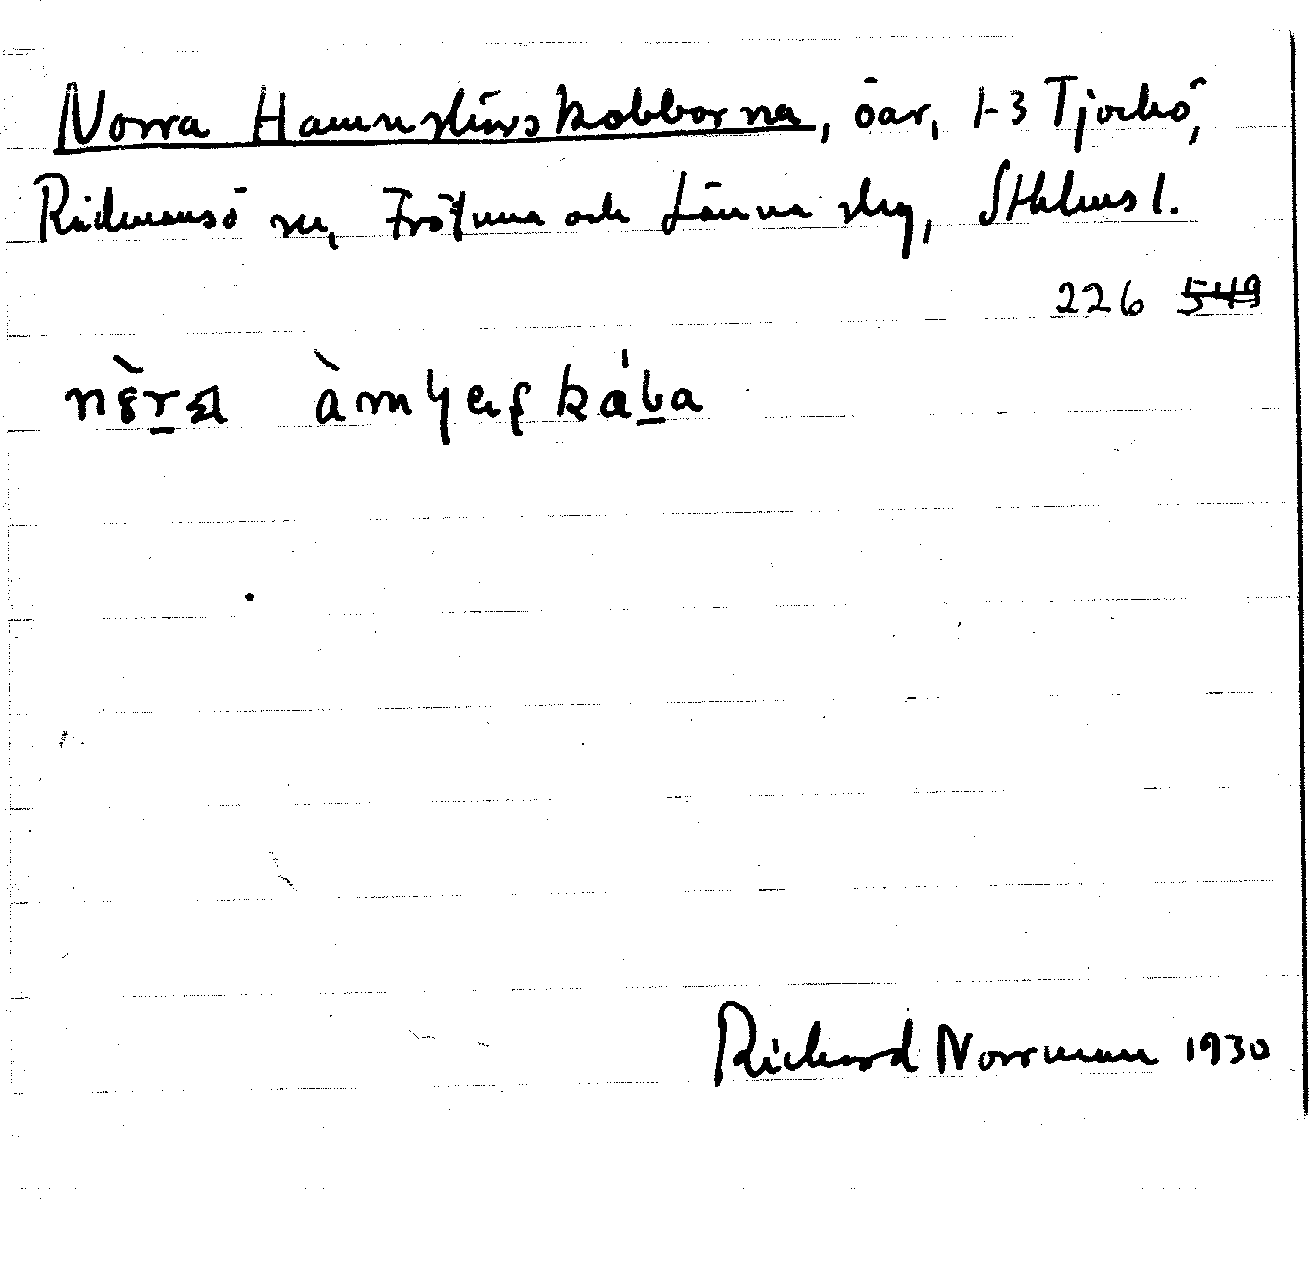 Norra Hamnskärskobbarna, öar, 1-3 Tjockö,
Rådmansö sn, Frötuna och Länna skg, Sthlms l.
226 549
Richard Norrman 1930